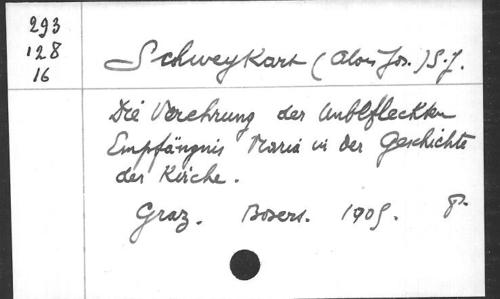 293
128
16
Schweykart (Alois Jos.) S.J.
Die Verehrung der Unbefleckten
Empfängnis Mariä in der Geschichte
der Kirche.
Graz. 1905. 8º